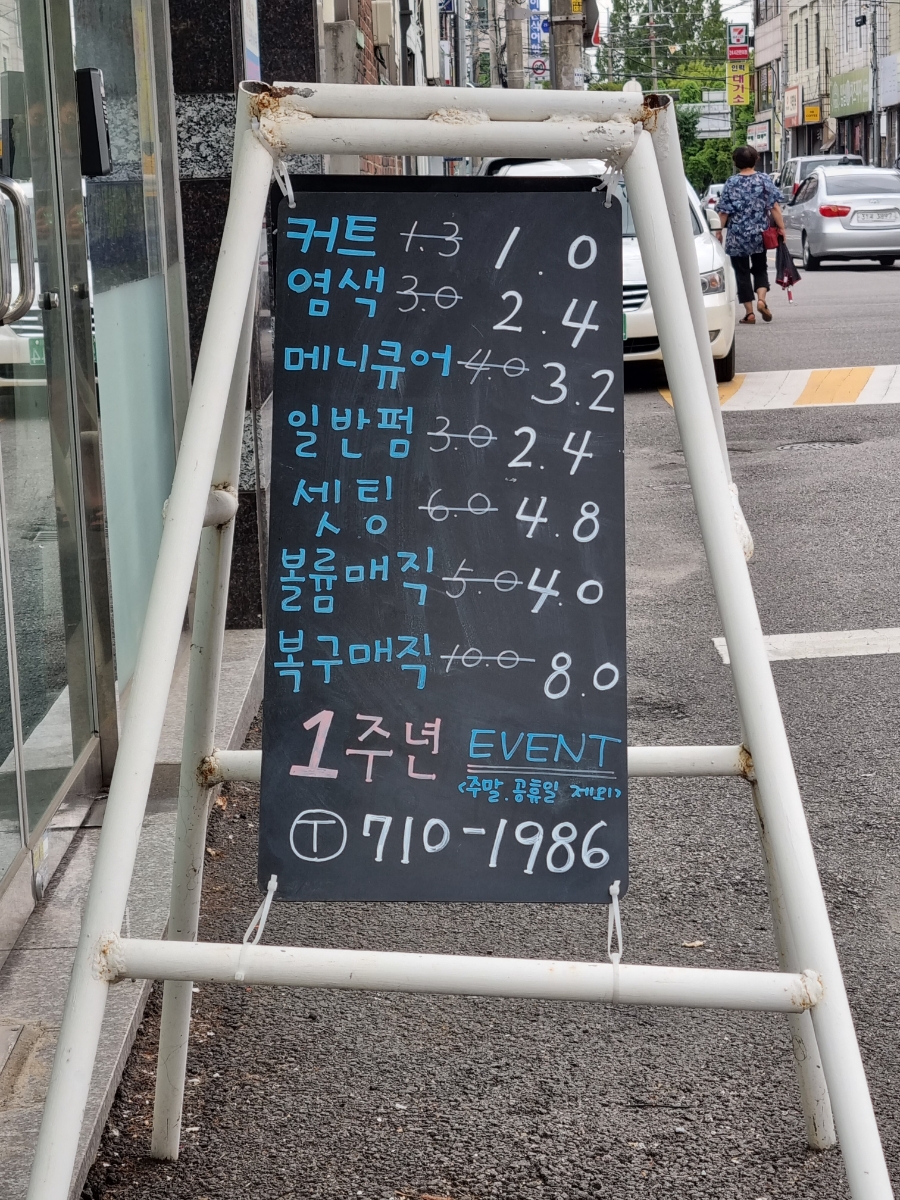 커트 1.3 1.0
염색 3.0 2.4
메니큐어 4.0 3.2
일반펌 3.0 2.4
셋팅 6.0 4.8
볼륨매직 5.0 4.0
복구매직 10.0 8.0
1주년 EVENT
<주말.공휴일 제외>
Ⓣ 710-1986
인력
대기소
7